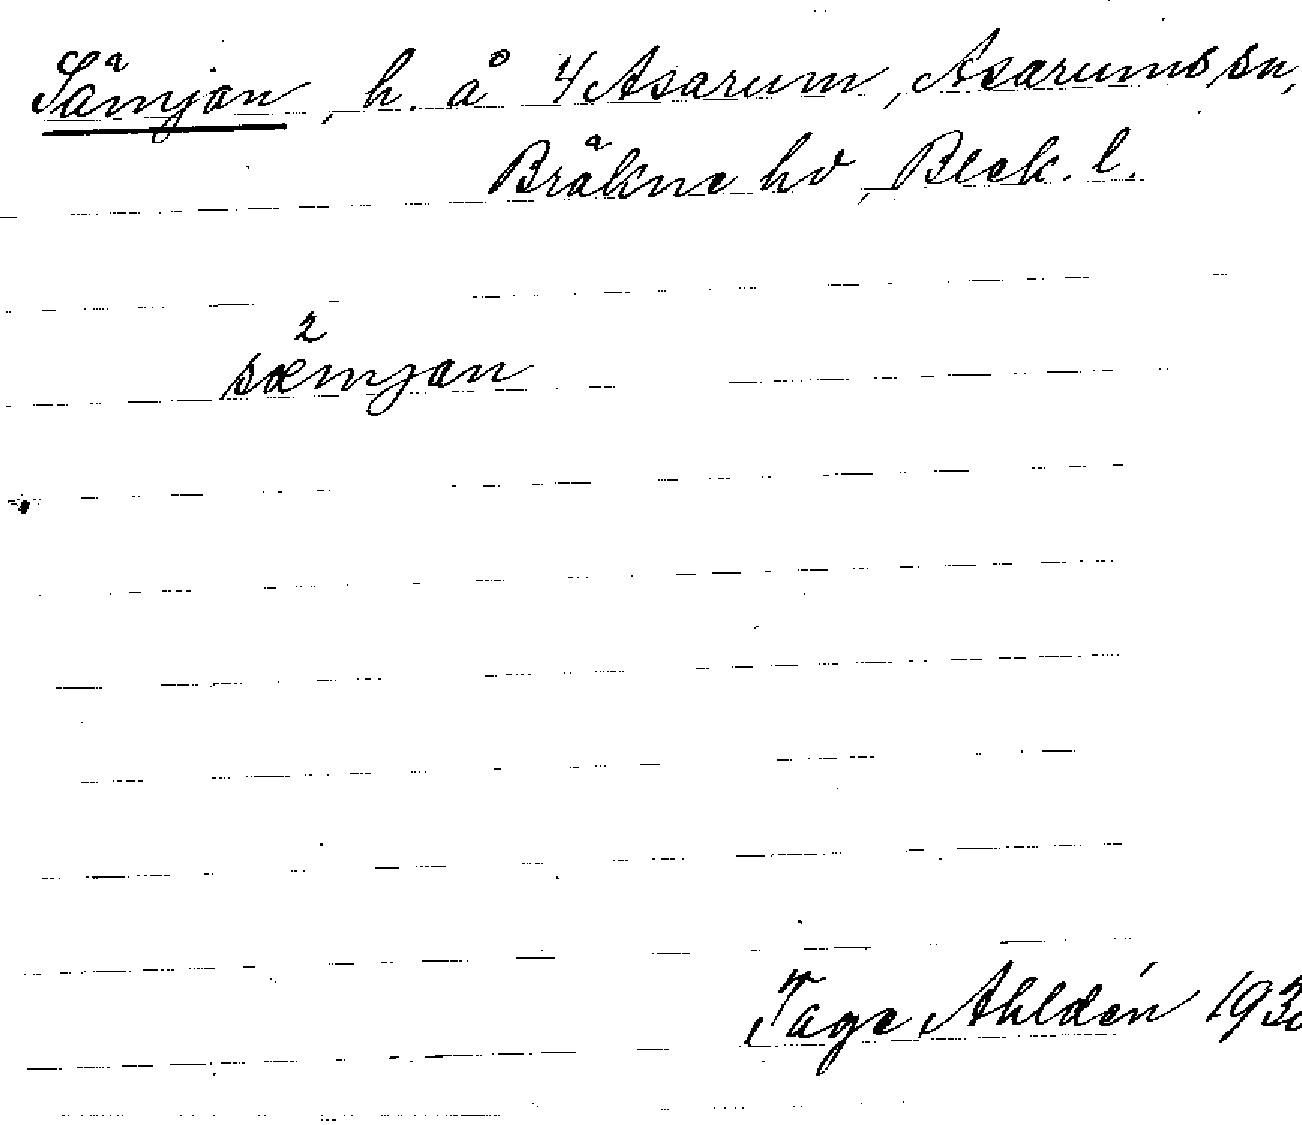 Sämjan, h. å 4 Asarum, Asarums sn,
Bräkne hd, Blek. l.
2
sæmjan
Tage Ahldén 193